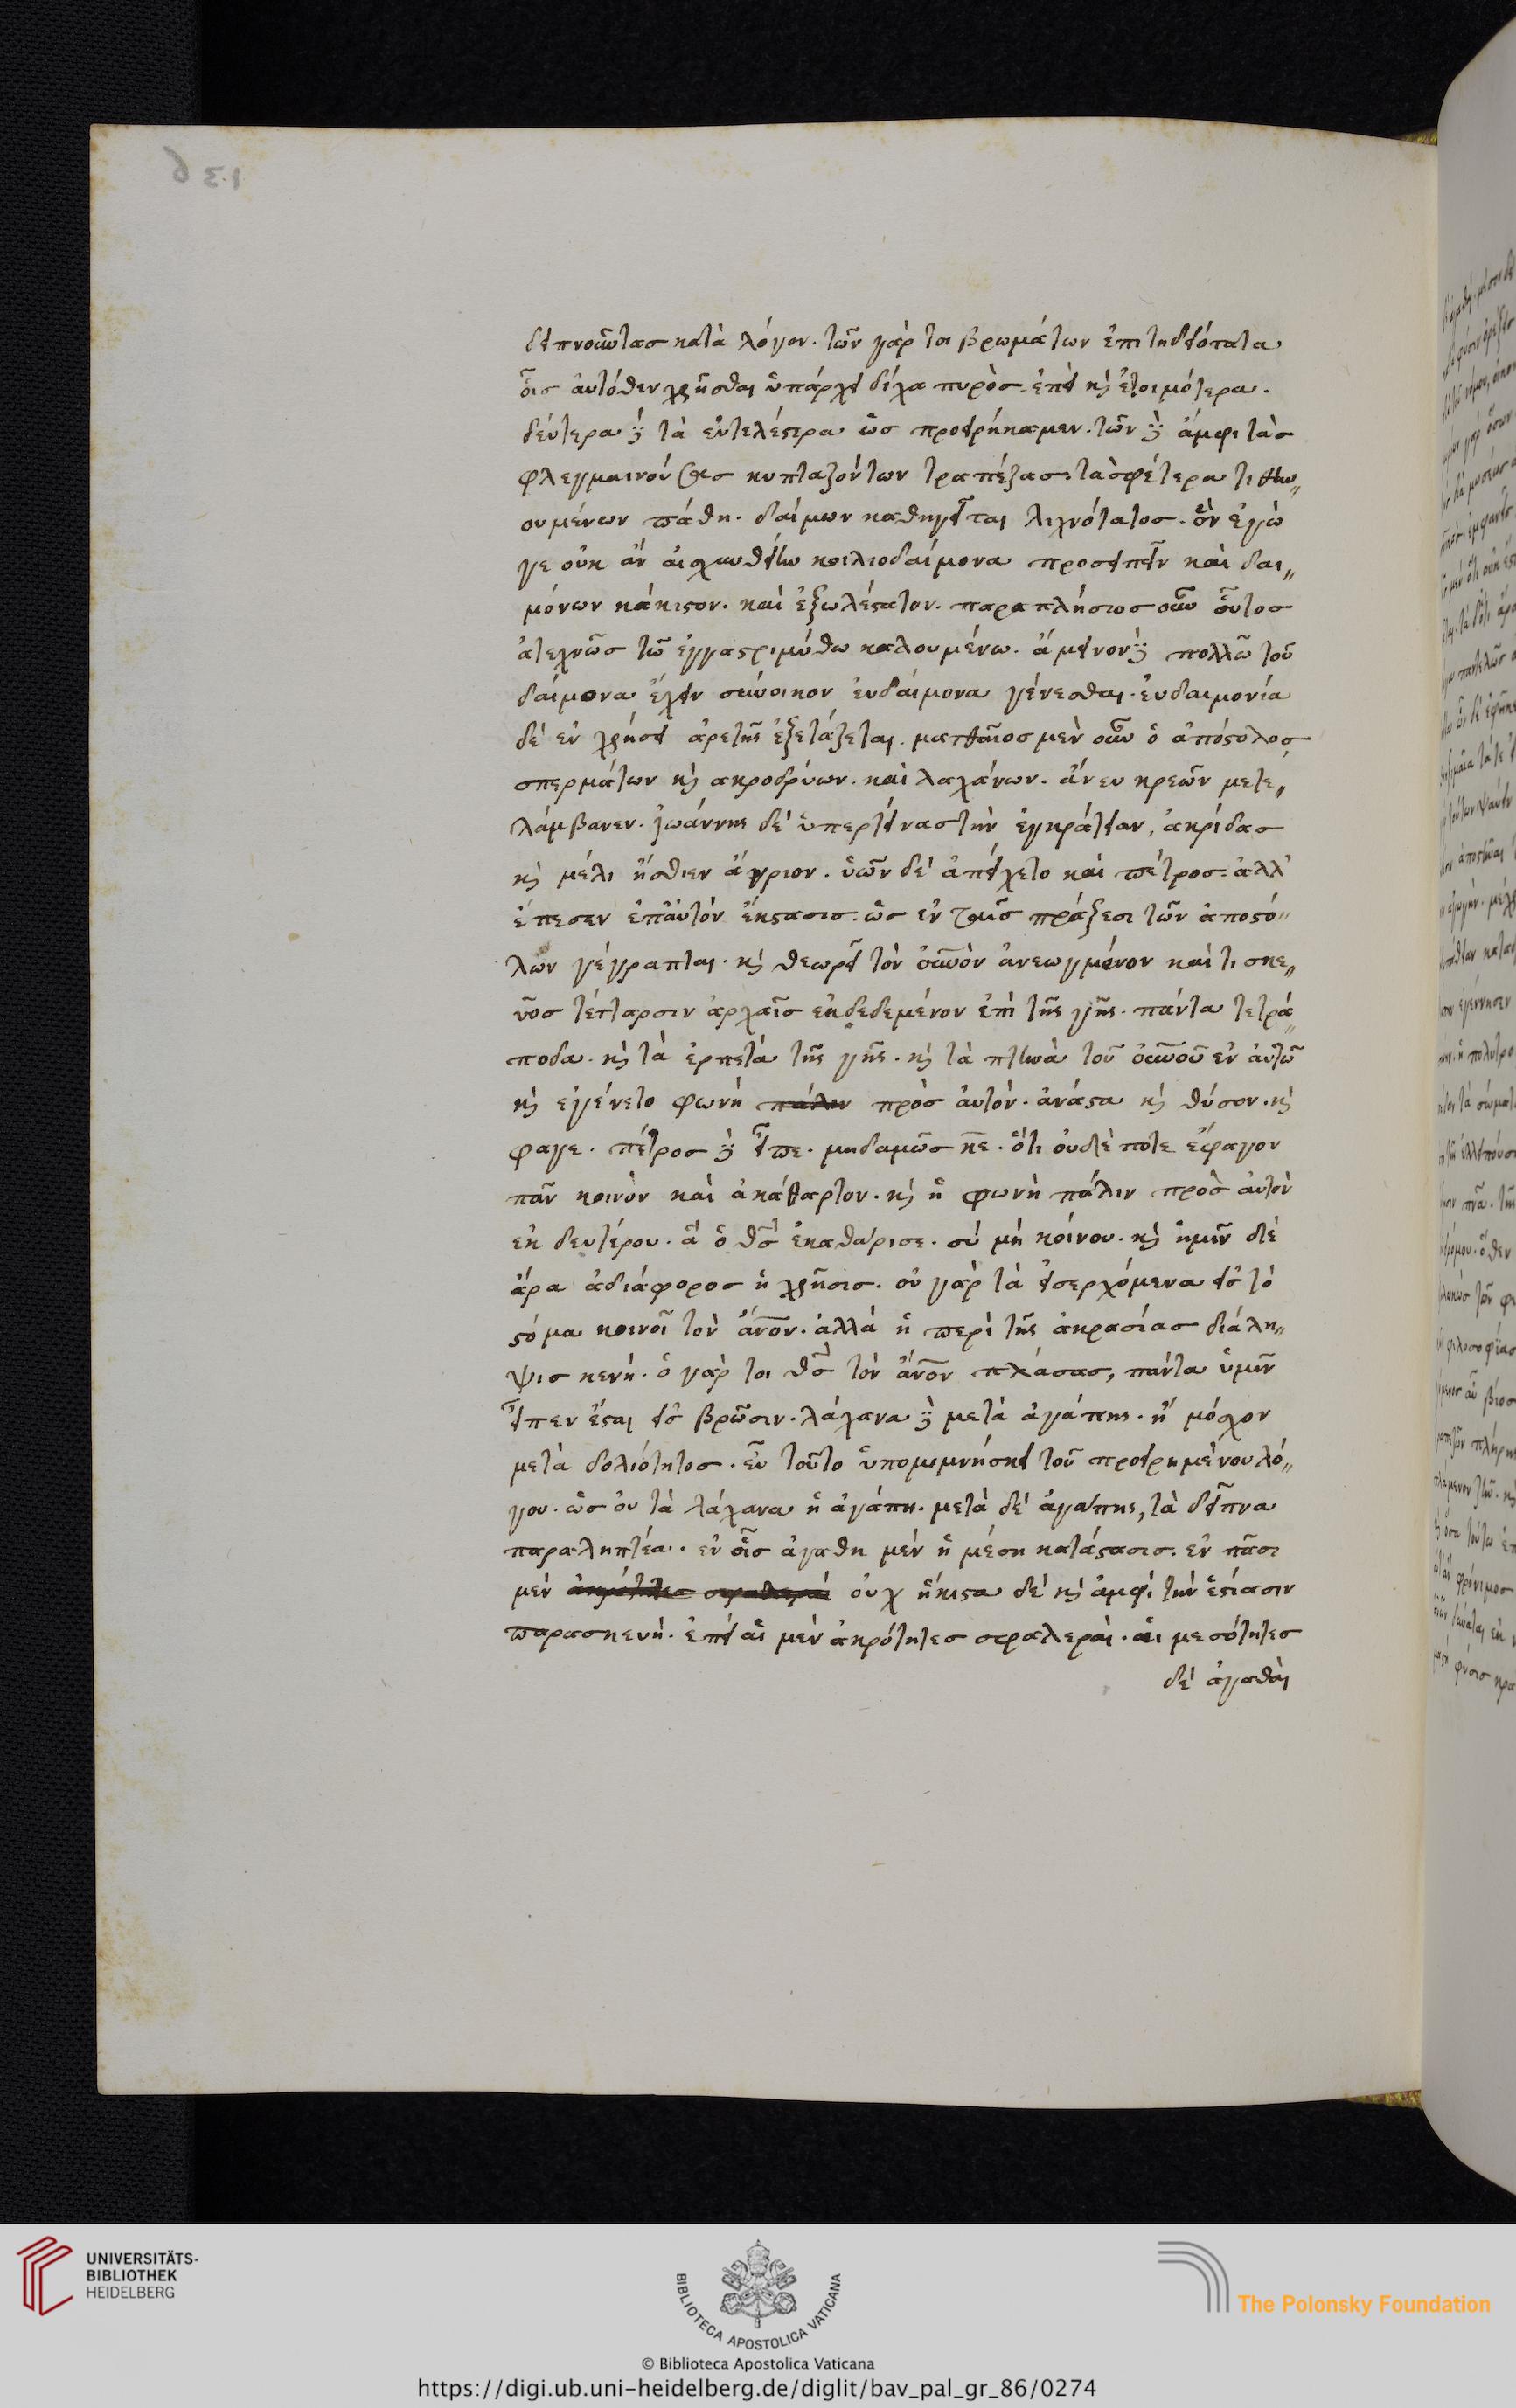 δειπνοῦντας κατὰ λόγον. τῶν γάρ τοι βρωμάτων ἐπιτηδειότατα
οἷς αὐτόθεν χρῆσθαι ὑπάρχει δίχα πυρὸς. ἐπεὶ κὶ ἑτοιμότερα.
δεύτερα δὲ τὰ εὐτελέστερα ὡς προειρήκαμεν. τῶν δὲ ἀμφὶ τὰς
φλεγμαινούσας κυπταζόντων τραπέζας. τὰ σφέτερα τιθην„
ουμένων πάθη. δαίμων καθηγεῖται λιχνότατος. ὃν ἐγὼ
γε οὐκ ἂν αἰσχυνθείην κοιλιοδαίμονα προσειπεῖν καὶ δαι„
μόνων κάκιστον. καὶ ἐξωλέστατον. παραπλήσιος οὖν οὗτος
ἀτεχνῶς τῶ ἐγγαστριμύθω καλουμένω. ἄμεινον δὲ πολλῶ τοῦ
δαίμονα ἔχειν σύνοικον εὐδαίμονα γένεσθαι. εὐδαιμονία
δὲ ἐν χρήσει ἀρετῆς ἐξετάζεται. ματθαῖος μὲν οὖν ὁ ἀπόστολος
σπερμάτων κὶ ακροδρύων. καὶ λαχάνων. ἄνευ κρεῶν μετε„
λάμβανεν. ἰωάννης δὲ ὑπερτείνας τὴν ἐγκράτειαν, ἀκρίδας
κὶ μέλι ἤσθιεν ἄγριον. ὑῶν δὲ ἀπείχετο καὶ πέτρος. ἀλλ'
ἔπεσεν ἐπ' αὐτὸν ἔκστασις. ὡς ἐν ταῖς πράξεσι τῶν ἀποστό„
λων γέγραπται. κὶ θεωρεῖ τὸν οὐνὸν ἀνεωγμένον καὶ τι σκε„
ῦος τέτταρσιν ἀρχαῖς εκδεδεμένον ἐπὶ τῆς γῆς. πάντα τετρά„
ποδα. κὶ τὰ ἑρπετὰ τῆς γῆς. κὶ τὰ πτηνὰ τοῦ οὐνοῦ ἐν αὐτῶ
κὶ ἐγένετο φωνὴ πάλιν πρὸς αὐτόν. ἀνάστα κὶ θύσον. κὶ
φαγε. πέτρος δὲ εἶπε. μηδαμῶς κε. ὅτι οὐδέποτε ἔφαγον
πᾶν κοινὸν καὶ ἀκάθαρτον. κὶ ἡ φωνὴ πάλιν πρὸς αὐτὸν
ἐκ δευτέρου. ἃ ὁ θς ἐκαθάρισε. σύ μὴ κοίνου. κὶ ἡμῖν δὲ
ἄρα ἀδιάφορος ἡ χρῆσις. οὐ γὰρ τὰ εἰσερχόμενα εἰς τὸ
στόμα κοινοῖ τὸν ἄνον. ἀλλὰ ἡ περὶ τῆς ἀκρασίας διάλη„
ψις κενή. ὁ γάρ τοι θς τὸν ἄνον πλάσας, πάντα ὑμῖν
εἶπεν ἔσται εἰς βρῶσιν. λάχανα δὲ μετὰ ἀγάπης. ἢ μόσχον
μετὰ δολιότητος. εὖ τοῦτο ὑπομιμνήσκει τοῦ προειρημένου λό„
γου. ὡς οὐ τὰ λάχανα ἡ ἀγάπη. μετὰ δὲ ἀγάπης, τὰ δεῖπνα
παραληπτέα. ἐν οἷς ἀγαθὴ μὲν ἡ μέση κατάστασις. ἐν πᾶσι
μὲν ἀκρότητες σφαλεραί οὐχ ἥκιστα δὲ κὶ ἀμφὶ τὴν ἑστίασιν
παρασκευή. ἐπεὶ αἱ μὲν ἀκρότητες σφαλεραί. αἱ μεσότητες
δὲ ἀγαθαὶ
UNIVERSITÄTS-
BIBLIOTHEK
HEIDELBERG
BIBLIOTECA APOSTOLICA VATICANA
The Polonsky Foundation
© Biblioteca Apostolica Vaticana
https://digi.ub.uni-heidelberg.de/diglit/bav_pal_gr_86/0274